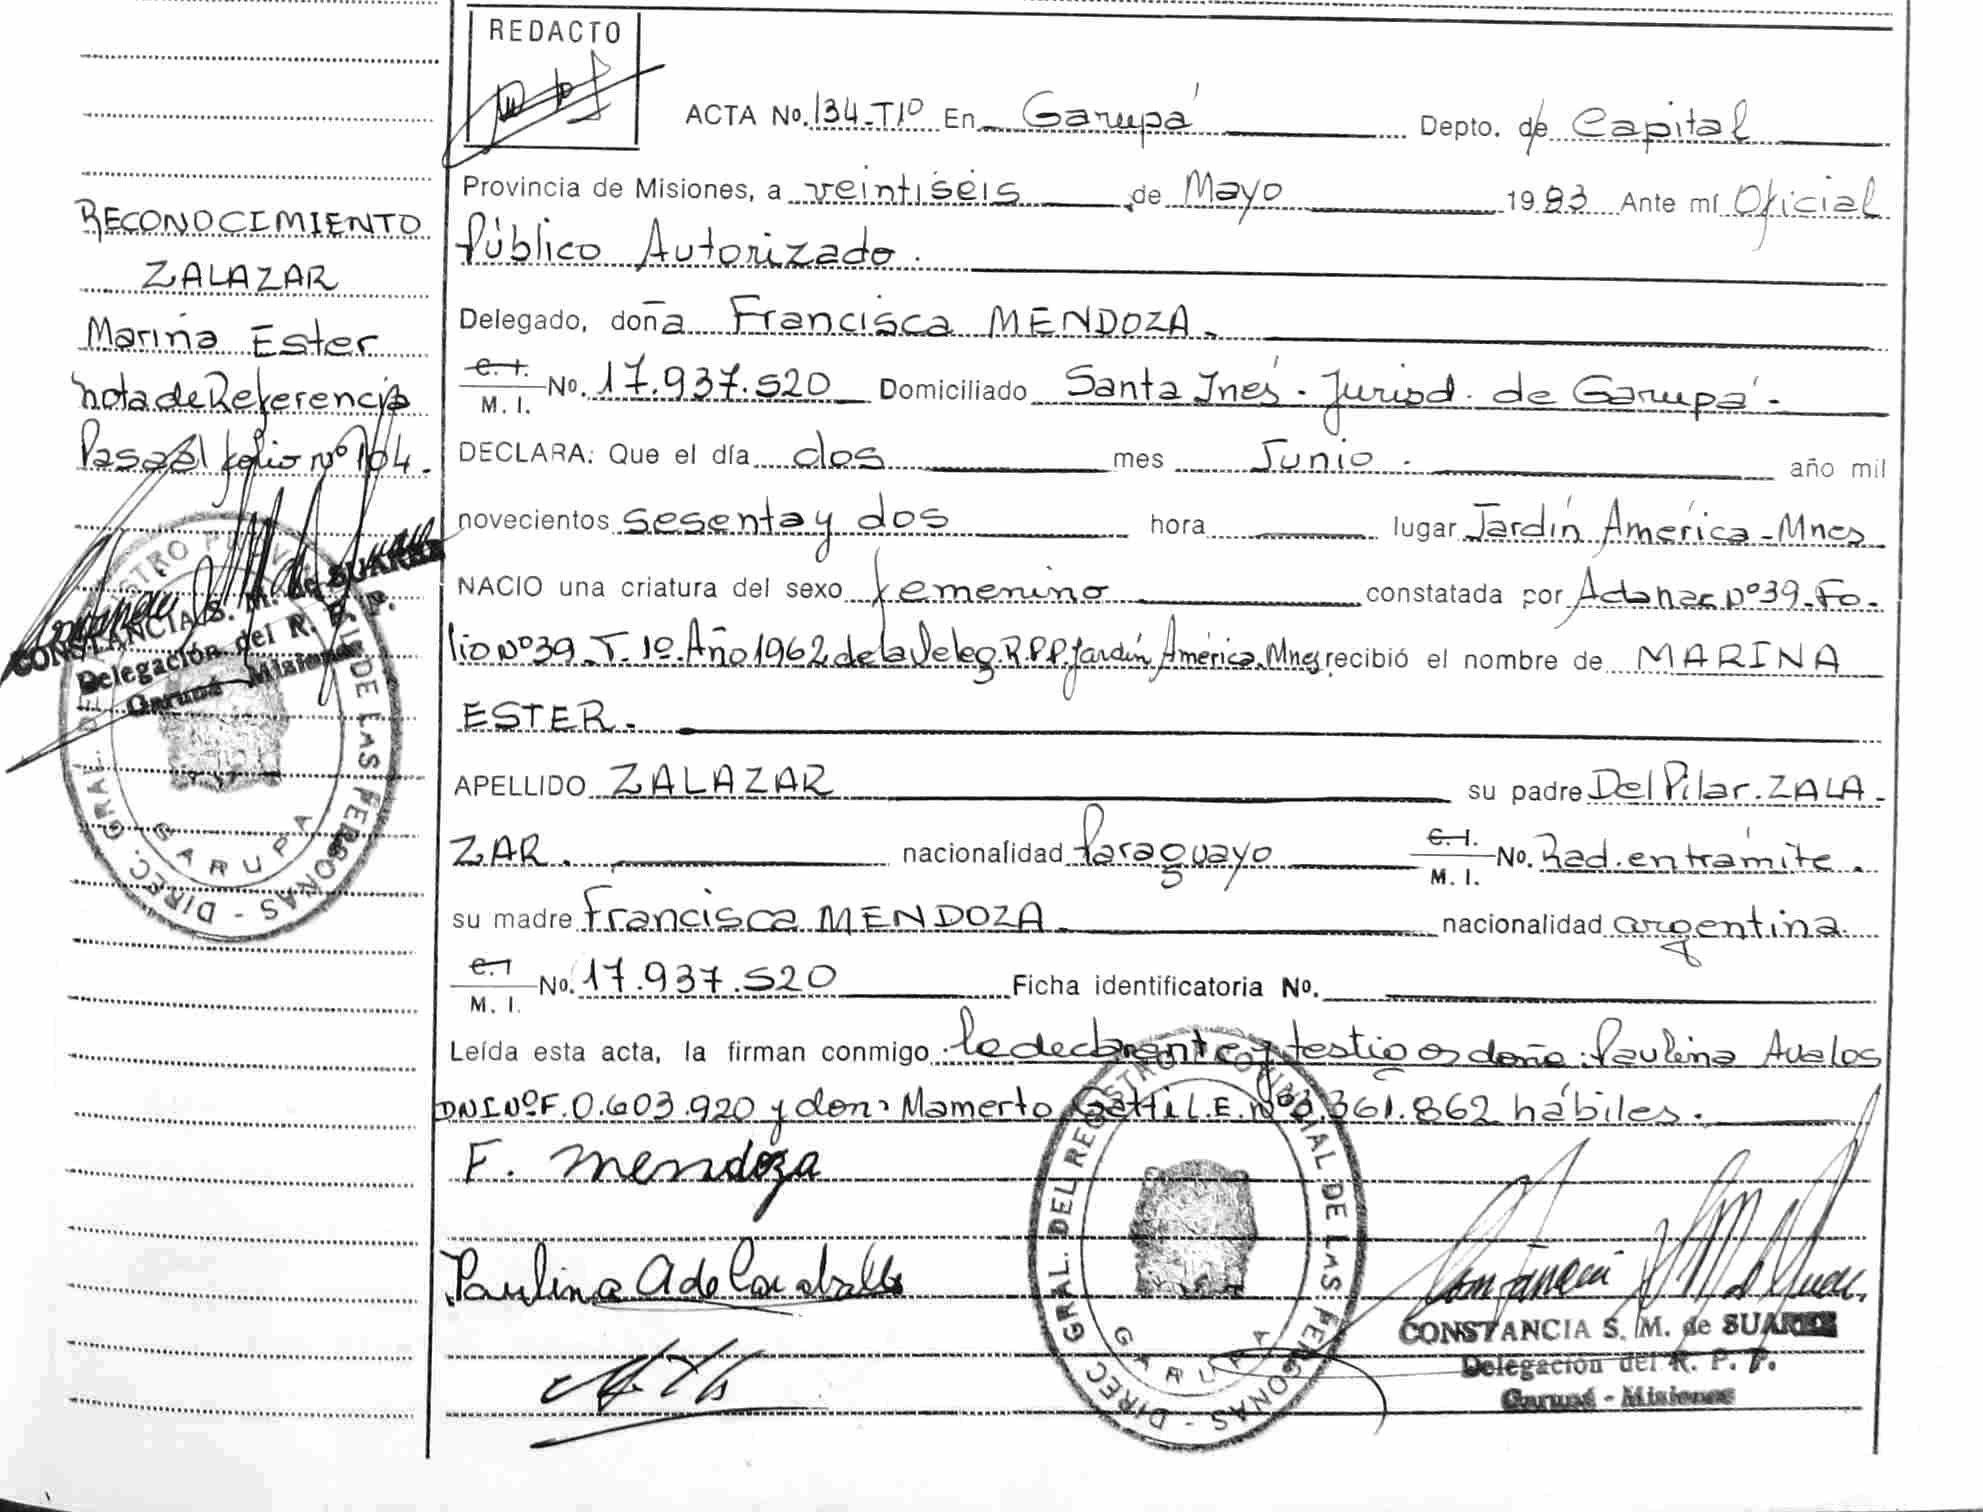 REDACTO
ACTA No. 134-T1º En Garupá Depto. de Capital
Provincia de Misiones, a veintiséis de Mayo 1983 Ante mí Oficial
Público Autorizado.
Delegado, doña Francisca MENDOZA.
C. I. M. I. No. 17.937.520 Domiciliado Santa Inés - Jurisd. de Garupá -
DECLARA: Que el día dos mes Junio. año mil
novecientos sesenta y dos hora lugar Jardín América - Mnes
NACIO una criatura del sexo femenino constatada por Acta nac Nº 39 - Fo-
lio Nº 39 - T. 1º. Año 1962 de la Deleg. R.P.P. Jardín América. Mnes recibió el nombre de MARINA
ESTER.
APELLIDO ZALAZAR su padre Del Pilar. ZALA-
ZAR. nacionalidad Paraguayo C. I. M. I. No. Rad. en trámite.
su madre Francisca MENDOZA. nacionalidad argentina.
C. I M. I. No. 17.937.520 Ficha identificatoria No.
Leída esta acta, la firman conmigo la declarante y testigos doña: Paulina Avalos
DNI Nº F. 0.603.920 y don: Mamerto Gatti L.E. Nº 3.361.862 hábiles.
F. Mendoza
Paulina A de
CONSTANCIA S. M. de SUAREZ
Delegación del R. P. P.
Garupá - Misiones
DIREC. GRAL. DEL REGISTRO PROVINCIAL DE LAS PERSONAS -
GARUPA
RECONOCIMIENTO
ZALAZAR
Marina Ester
nota de Referencia
Pasa al folio Nº 104.
CONSTANCIA S. M. de SUAREZ
Delegación del R. P. P.
Garupá - Misiones
DIREC. GRAL. DEL REGISTRO PROVINCIAL DE LAS PERSONAS -
GARUPA